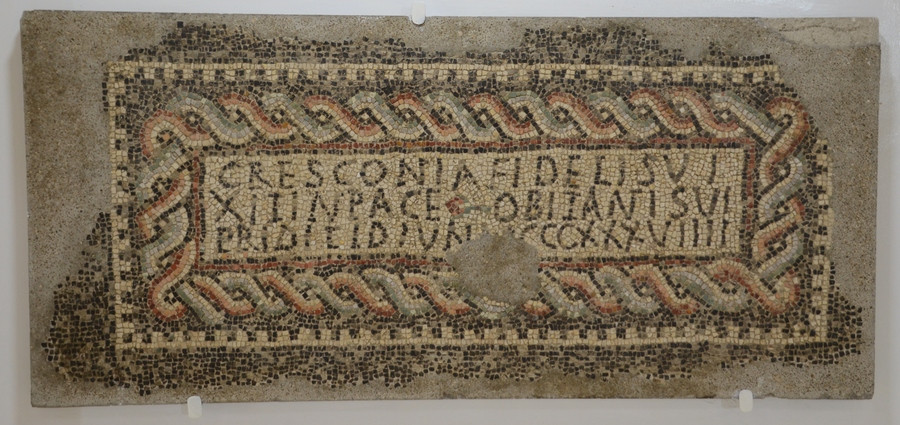 CRESCONIA FIDELIS VI
XIT IN PACE OBIT ANIS VI
PRIDIE ID IVN CCCXXXVIIII